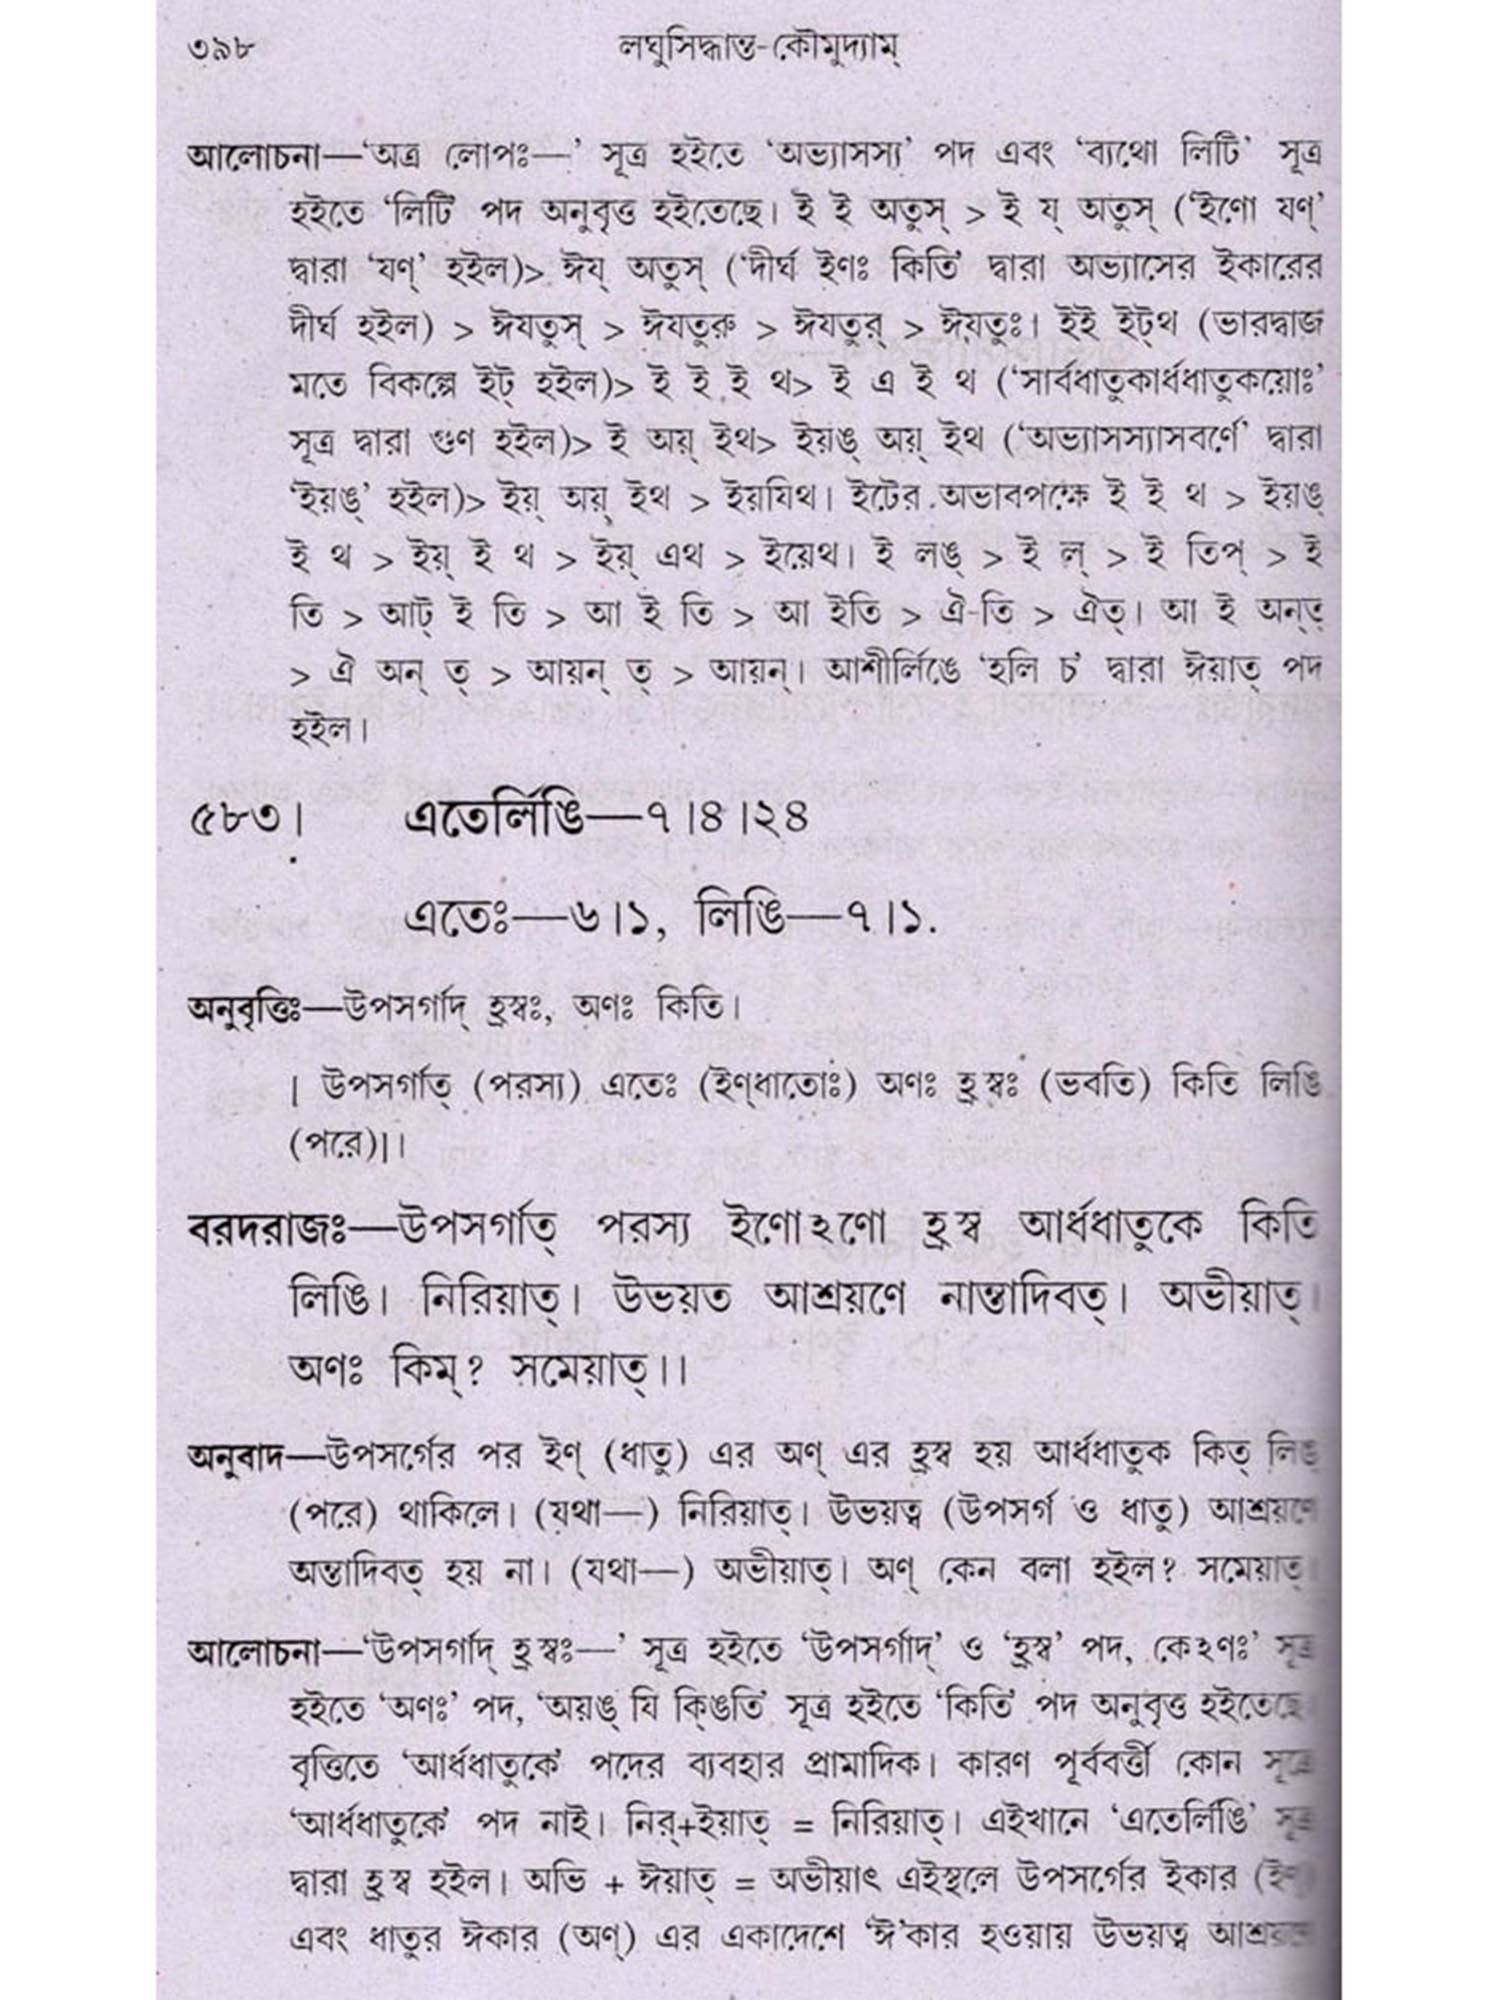 ৩৯৮ লঘুসিদ্ধান্ত-কৌমুদ্যাম্
আলোচনা—‘অত্র লোপঃ—’ সূত্র হইতে ‘অভ্যাসস্য’ পদ এবং ‘ব্যথো লিটি’ সূত্র
হইতে ‘লিটি পদ অনুবৃত্ত হইতেছে। ই ই অতুস্ > ই য্ অতুস্ (‘ইণো যণ্’
দ্বারা ‘যণ্’ হইল)> ঈয্ অতুস্ (‘দীর্ঘ ইণঃ কিতি’ দ্বারা অভ্যাসের ইকারের
দীর্ঘ হইল) > ঈযতুস্ > ঈযতুরু > ঈযতুর্ > ঈয়তুঃ। ইই ইট্থ (ভারদ্বাজ
মতে বিকল্পে ইট্ হইল)> ই ই ই থ> ই এ ই থ (‘সার্বধাতুকার্ধধাতুকয়োঃ’
সূত্র দ্বারা গুণ হইল)> ই অয়্ ইথ> ইয়ঙ্ অয়্ ইথ (‘অভ্যাসস্যাসবর্ণে’ দ্বারা
‘ইয়ঙ্’ হইল)> ইয়্ অয়্ ইথ > ইয়যিথ। ইটের অভাবপক্ষে ই ই থ > ইয়ঙ্
ই থ > ইয়্ ই থ > ইয়্ এথ > ইয়েথ। ই লঙ্ > ই ল্ > ই তিপ্ > ই
তি > আট্ ই তি > আ ই তি > আ ইতি > ঐ-তি > ঐত্। আ ই অন্ত্
> ঐ অন্ ত্ > আয়ন্ ত্ > আয়ন্। আশীর্লিঙে ‘হলি চ’ দ্বারা ঈয়াত্ পদ
হইল।
৫৮৩। এতের্লিঙি—৭।৪।২৪
এতেঃ—৬।১, লিঙি—৭।১.
অনুবৃত্তিঃ—উপসর্গাদ্ হ্রস্বঃ, অণঃ কিতি।
[ উপসর্গাত্ (পরস্য) এতেঃ (ইণ্ধাতোঃ) অণঃ হ্রস্বঃ (ভবতি) কিতি লিঙি
(পরে)]।
বরদরাজঃ—উপসর্গাত্ পরস্য ইণোঽণো হ্রস্ব আর্ধধাতুকে কিতি
লিঙি। নিরিয়াত্। উভয়ত আশ্রয়ণে নান্তাদিবত্। অভীয়াত্।
অণঃ কিম্? সমেয়াত্।।
অনুবাদ—উপসর্গের পর ইণ্ (ধাতু) এর অণ্ এর হ্রস্ব হয় আর্ধধাতুক কিত্ লিঙ্
(পরে) থাকিলে। (যথা—) নিরিয়াত্। উভয়ত্ব (উপসর্গ ও ধাতু) আশ্রয়ণে
অন্তাদিবত্ হয় না। (যথা—) অভীয়াত্। অণ্ কেন বলা হইল? সমেয়াত্।
আলোচনা—‘উপসর্গাদ্ হ্রস্বঃ—’ সূত্র হইতে ‘উপসর্গাদ্’ ও ‘হ্রস্ব’ পদ, কেঽণঃ’ সূত্র
হইতে ‘অণঃ’ পদ, ‘অয়ঙ্ যি ক্ঙিতি’ সূত্র হইতে ‘কিতি’ পদ অনুবৃত্ত হইতেছে।
বৃত্তিতে ‘আর্ধধাতুকে’ পদের ব্যবহার প্রামাদিক। কারণ পূর্ববর্ত্তী কোন সূত্রে
‘আর্ধধাতুকে’ পদ নাই। নির্+ইয়াত্ = নিরিয়াত্। এইখানে ‘এতের্লিঙি’ সূত্র
দ্বারা হ্রস্ব হইল। অভি + ঈয়াত্ = অভীয়াৎ এইস্থলে উপসর্গের ইকার
এবং ধাতুর ঈকার (অণ্) এর একাদেশে ‘ঈ’কার হওয়ায় উভয়ত্ব